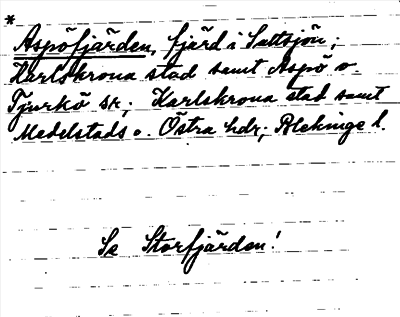 *
Aspöfjärden, fjärd i Saltsjön;
Karlskrona stad samt Aspö o.
Tjurkö sr; Karlskrona stad samt
Medelstads o. Östra hdr; Blekinge l.
Se Storfjärden!